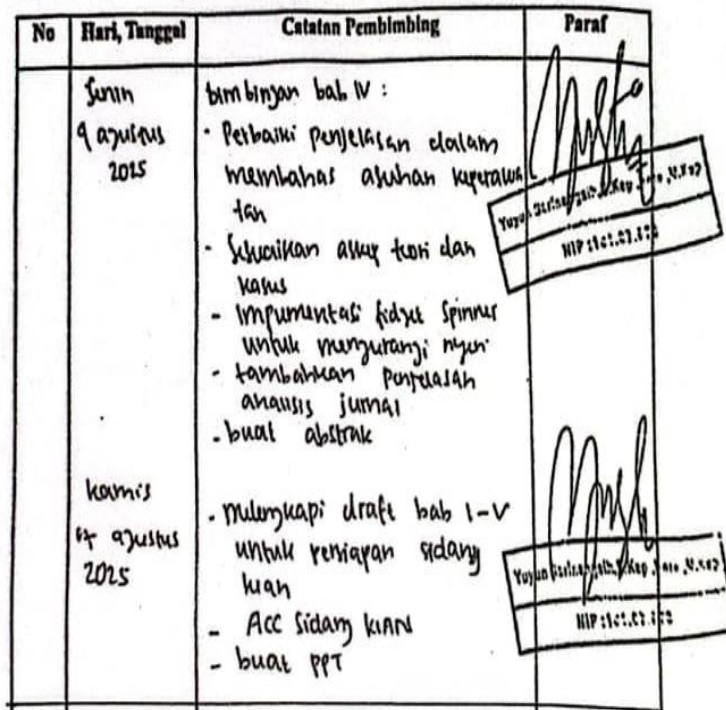 No Hari, Tanggal Catatan Pembimbing Paraf
Senin
9 agustus
2025
bimbingan bab IV :
- Perbaiki penjelasan dalam
membahas asuhan keperawa
tan
- Sesuaikan askep teori dan
kasus
- Implementasi fidget spinner
untuk mengurangi nyeri
- tambahkan penjelasan
analisis jurnal
- buat abstrak
kamis
07 agustus
2025
- melengkapi draft bab I-V
untuk persiapan sidang
kian
- Acc Sidang KIAN
- buat PPT